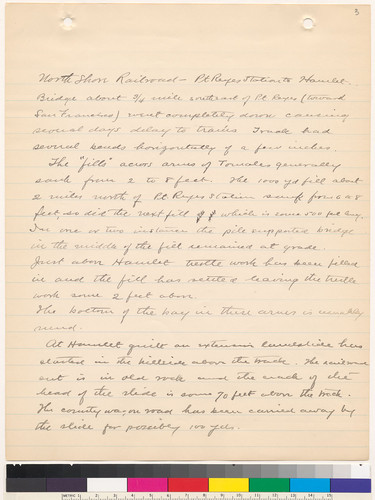 3
North Shore Railroad - Pt Reyes Station to Hamlet.
Bridge about 3/4 mile southeast of Pt Reyes (toward
San Francisco) went completely down causing
several days delay to trains. Track had
several bends horizontally of a few inches.
The "fills" across arms of Tomales generally
sank from 2 to 8 feet. The 1000 yd fill about
2 miles north of Pt Reyes Station sank from 6 to 8
feet so did the next fill which is some 500 yds long.
In one or two instances the pile supported bridge
in the middle of the fill remained at grade.
Just above Hamlet trestle work has been filled
in and the fill has settled leaving the trestle
work some 2 feet above.
The bottom of the bay in these arms is usually
mud.
At Hamlet quite an extensive landslide has
started in the hillside above the track. The railroad
cut is in old rock and the crack of the
head of the slide is some 70 feet above the track.
The county wagon road has been carried away by
the slide for possibly 100 yds.